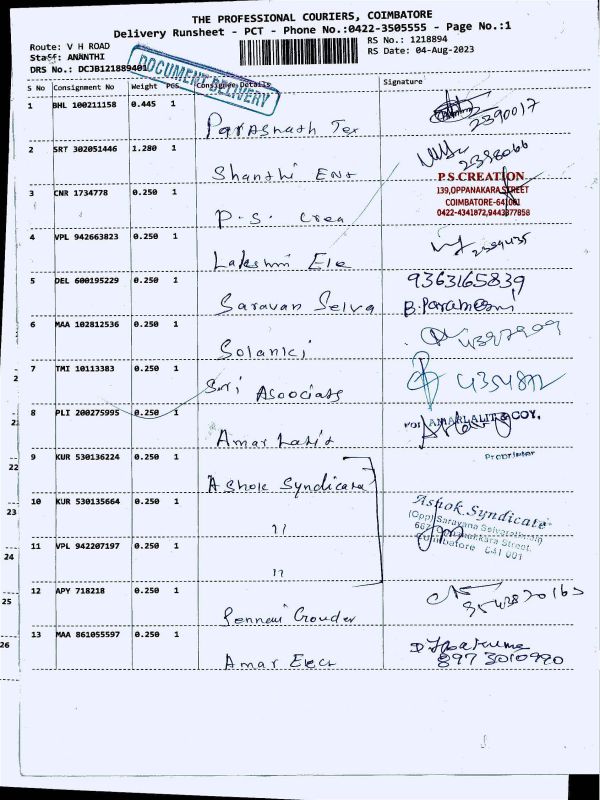 THE PROFESSIONAL COURIERS, COIMBATORE
Delivery Runsheet - PCT - Phone No.:0422-3505555 - Page No.:1
Route: V H ROAD
RS No.: 1218894
Staff: ANANTHI
RS Date: 04-Aug-2023
DRS No.: DCJB121889401
DOCUMENT DELIVERY
S No Consignment No Weight PCS Consignee Details Signature
1 BHL 100211158 0.445 1
Parasnath Tex
2390017
2 SRT 302051446 1.280 1
Shanthi Ent
2398066
3 CNR 1734778 0.250 1
P.S. Crea
P.S.CREATION
139,OPPANAKARA STREET
COIMBATORE-641001
0422-4341872,9443377858
4 VPL 942663823 0.250 1
Lakshmi Ele
5 DEL 600195229 0.250 1
Saravan Selva
9363165839
B.Parameswari
6 MAA 102812536 0.250 1
Solanki
4397909
7 TMI 10113383 0.250 1
Sri Asociats
4354872
8 PLI 200275995 0.250 1
Amar Lalit
For AMARLALIT & COY.
Proprietor
9 KUR 530136224 0.250 1
Ashok Syndicate
10 KUR 530135664 0.250 1
11
Ashok Syndicate
(Opp) Saravana Selvarathnam
Oppanakkara Street,
Coimbatore 641 001
11 VPL 942207197 0.250 1
11
12 APY 718218 0.250 1
Ponnai Gounder
13 MAA 861055597 0.250 1
Amar Elect
8973010990
22
23
24
25
26